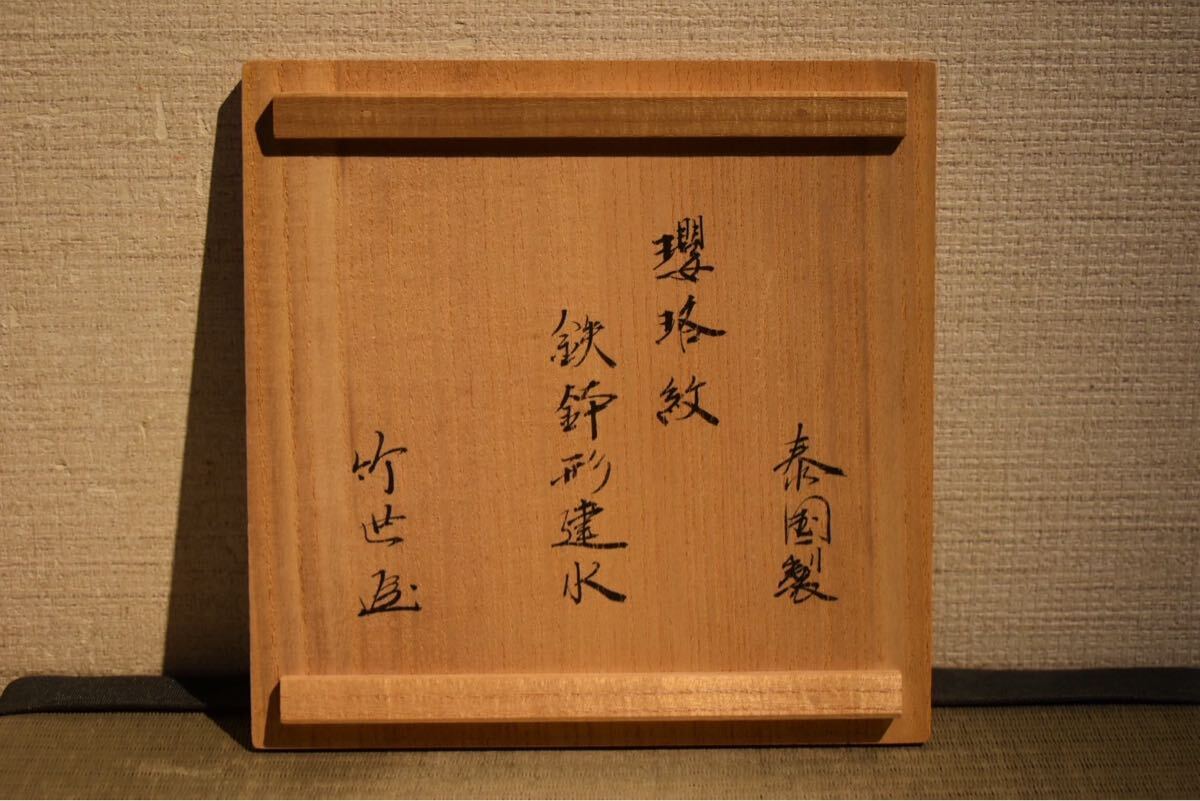 泰国製
瓔珞紋
鉄鉢形建水
竹世庵